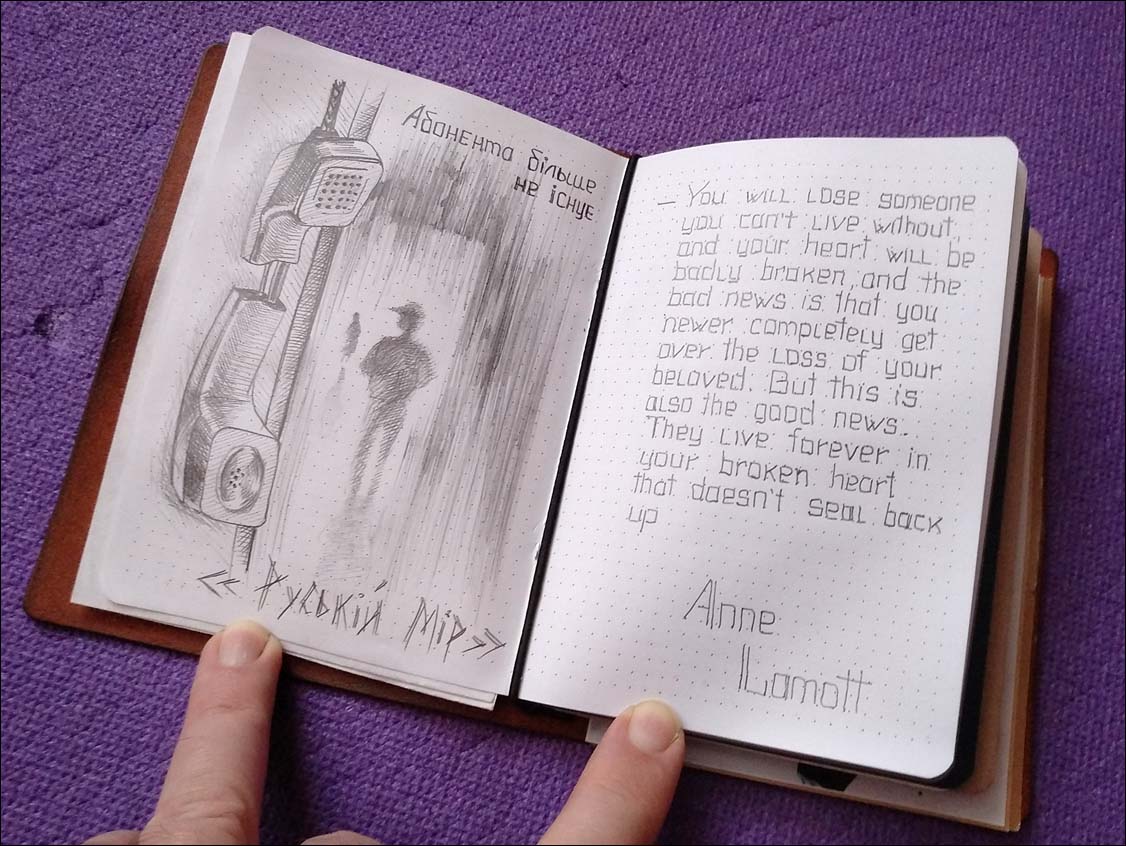 Абонента більше
не існує
<< Руській Мір >>
— You will lose someone
you can't live without,
and your heart will be
badly broken, and the
bad news is that you
newer completely get
over the loss of your
beloved. But this is
also the good news.
They live forever in
your broken heart
that doesn't seal back
up
Anne
Lamott